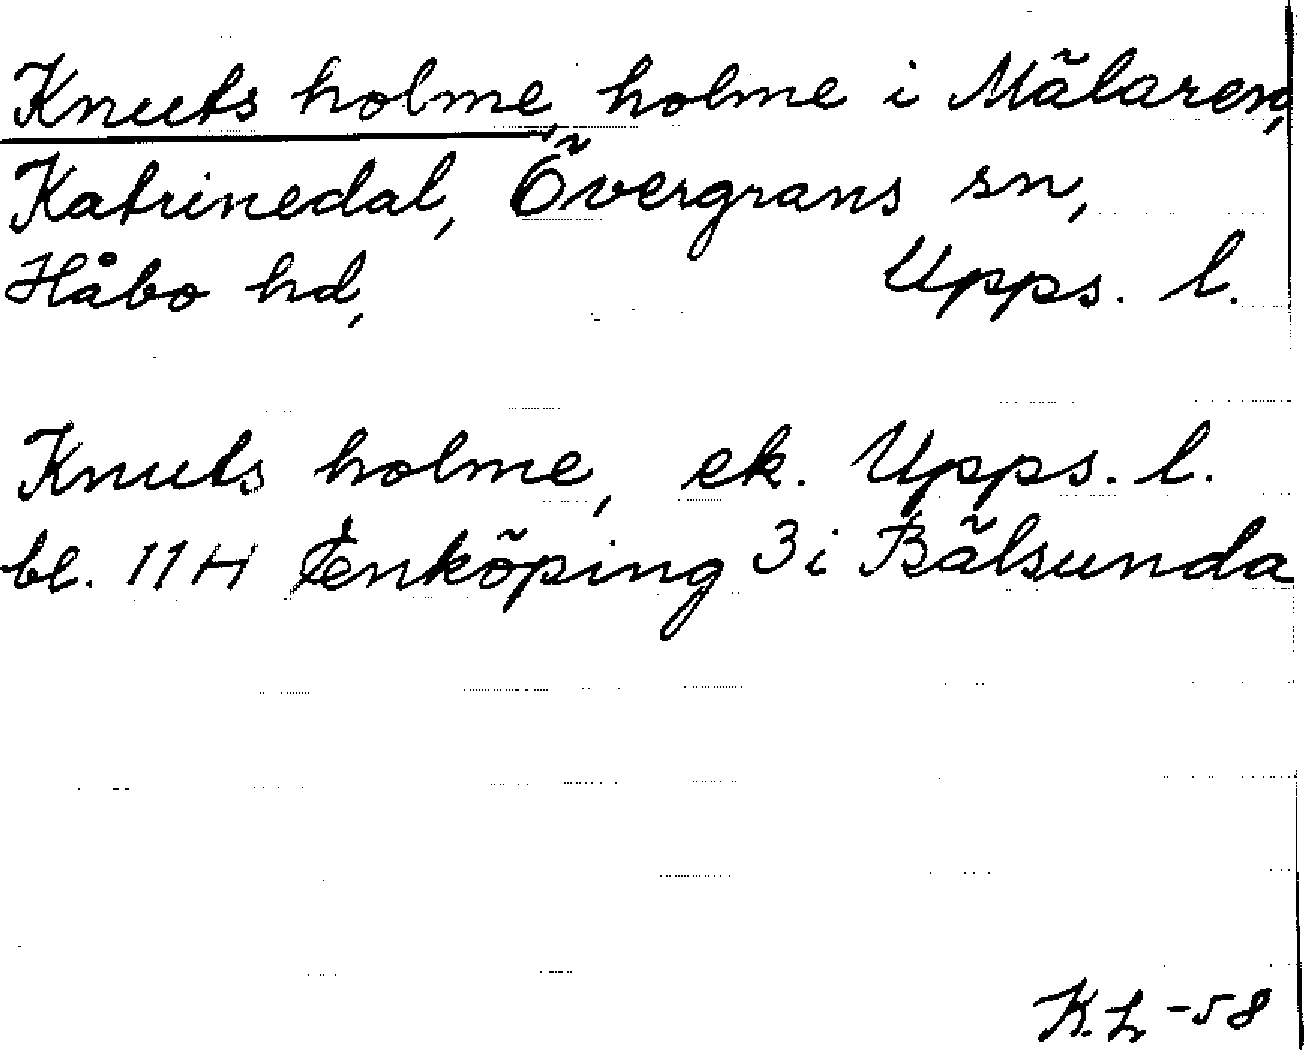 Knuts holme, holme i Mälaren,
Katrinedal, Övergrans sn,
Håbo hd, Upps. l.
Knuts holme, ek. Upps. l.
bl. 11 H Enköping 3 i Bälsunda
K.L -58